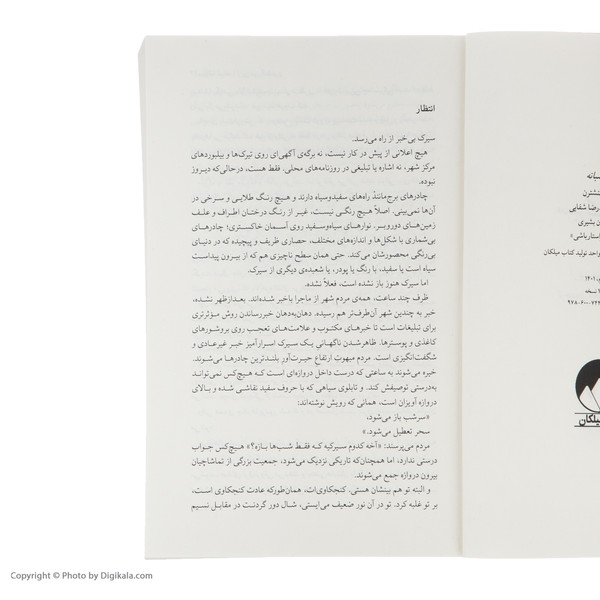 انتظار
سیرک بی‌خبر از راه می‌رسد.
هیچ اعلانی از پیش در کار نیست، نه برگه‌ی آگهی‌ای روی تیرک‌ها و بیلبوردهای
مرکز شهر، نه اشاره یا تبلیغی در روزنامه‌های محلی. فقط هست، درحالی‌که دیروز
نبوده.
چادرهای برج‌مانندْ راه‌های سفیدوسیاه دارند و هیچ رنگ طلایی و سرخی در
آن‌ها نمی‌بینی. اصلاً هیچ رنگی نیست، غیر از رنگ درختان اطراف و علف
زمین‌های دوروبر. نوارهای سیاه‌وسفید روی آسمان خاکستری؛ چادرهای
بی‌شماری با شکل‌ها و اندازه‌های مختلف، حصاری ظریف و پیچیده که در دنیای
بی‌رنگی محصورشان می‌کند. حتی همان سطح ناچیزی هم که از بیرون پیداست
سیاه است یا سفید، با رنگ یا پودر، یا شعبده‌ی دیگری از سیرک.
اما سیرک هنوز باز نشده است، فعلاً نشده.
ظرف چند ساعت، همه‌ی مردم شهر از ماجرا باخبر شده‌اند. بعدازظهر نشده،
خبر به چندین شهر آن‌طرف‌تر هم رسیده. دهان‌به‌دهان خبررساندن روش مؤثرتری
برای تبلیغات است تا خبرهای مکتوب و علامت‌های تعجب روی بروشورهای
کاغذی و پوسترها. ظاهرشدن ناگهانی یک سیرک اسرارآمیز خبر غیرعادی و
شگفت‌انگیزی است. مردم مبهوتِ ارتفاع حیرت‌آور بلندترین چادرها می‌شوند.
خیره می‌شوند به ساعتی که درست داخل دروازه‌ای است که هیچ‌کس نمی‌تواند
به‌درستی توصیفش کند. و تابلوی سیاهی که با حروف سفید نقاشی شده و بالای
دروازه آویزان است، همانی که رویش نوشته‌اند:
«سرشب باز می‌شود،
سحر تعطیل می‌شود.»
مردم می‌پرسند: «آخه کدوم سیرکیه که فقط شب‌ها بازه؟» هیچ‌کس جواب
درستی ندارد، اما همچنان‌که تاریکی نزدیک می‌شود، جمعیت بزرگی از تماشاچیان
بیرون دروازه جمع می‌شوند.
و البته تو هم بینشان هستی. کنجکاوی‌ات، همان‌طورکه عادت کنجکاوی است،
بر تو غلبه کرد. تو در آن نور ضعیف می‌ایستی، شال دور گردنت در مقابل نسیم
رضا شفایی
ن بشیری
استارباشی»
واحد تولید کتاب میلکان
۱۴۰۱
نسخه
۹۷۸-۶۰۰-۷۲۲
میلکان
Copyright © Photo by Digikala.com